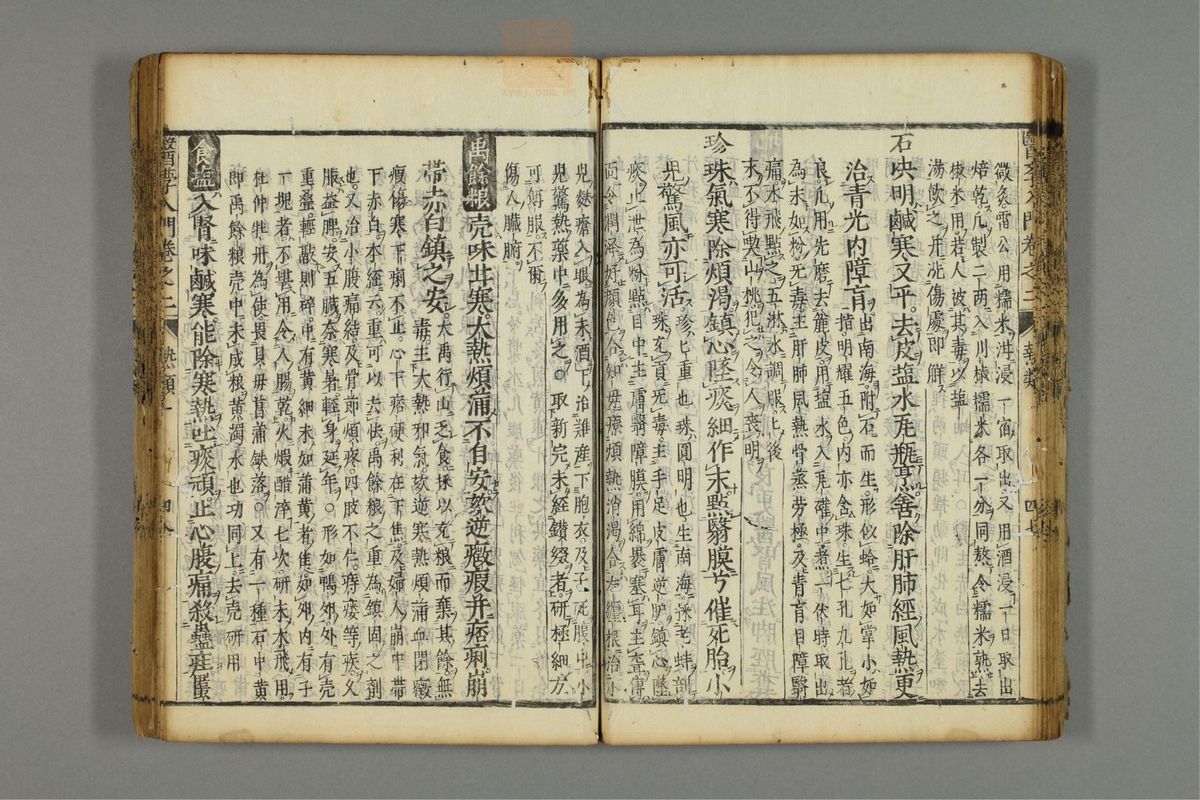 醫學入門卷之二 熱類
微炙雷公用糯米泔浸一宿取出又用酒浸一日取出
焙乾凡製二兩入川椒糯米各一分同熬令糯米熟去
椒米用若人被其毒以塩
湯飲之并洗傷處即觧
石决明鹹寒又平去皮塩水瓦瓶烹善除肝肺經風熱更
治青光内障盲
出南海附石而生形似蛤大如掌小如
指明耀五色内亦含珠生七孔九孔者
良凡用先磨去麄皮用塩水入瓦確中煮一伏時取出
為末如粉无毒主肝肺風熱骨蒸勞極及青盲目障翳
痛水飛點之五淋水調服此後
永不得喫山桃犯之令人喪明
珍珠氣寒除煩渴鎮心墜痰細作末點翳膜兮催死胎小
児驚風亦可活
珍七重也珠圓明也生南海採老蚌剖
珠玄貢无毒主手足皮膚逆胪鎮心墜
痰止泄為粉點目中主膚翳障膜用綿褁塞耳主聾傅
面令潤泽好顔色合知母療煩熱消渴合左纏根治小
児麩瘡入眼為末酒下治難産下胞衣及子死腹中小
児驚熱藥中多用之○取新完未経鑚綴者研極細方
可傅服不爾
傷人臟腑
禹餘粮壳味甘寒大熱煩滿不自安欬逆癥瘕并痞痢崩
帯赤白鎮之安
大禹行山乏食採以充粮而棄其餘無
毒主大熱邪氣欬逆寒熱煩滿血閉癥
瘕傷寒下痢不止心下痞硬利在下焦及婦人崩中帯
下赤白本經云重可以去怯禹餘粮之重為鎮固之剤
也又治小腹痛結及骨節煩疼四肢不仁痔瘻等疾久
服益脾安五臓奈寒暑輕身延年○形如鴨卵外有壳
重疊輕敲則碎中有黄細末如蒲黄者佳如卵内有子
一塊者不堪用令人腸乾火煅醋淬七次研末水飛用
杜仲牡丹為使畏貝毋菖蒲鉄落○又有一種石中黄
即禹餘粮壳中未成粮黄濁水也功同上去壳研用
食塩入腎味鹹寒能除寒熱吐痰頑止心腹痛殺蠱疰䘌
醫學入門卷之二 熱類